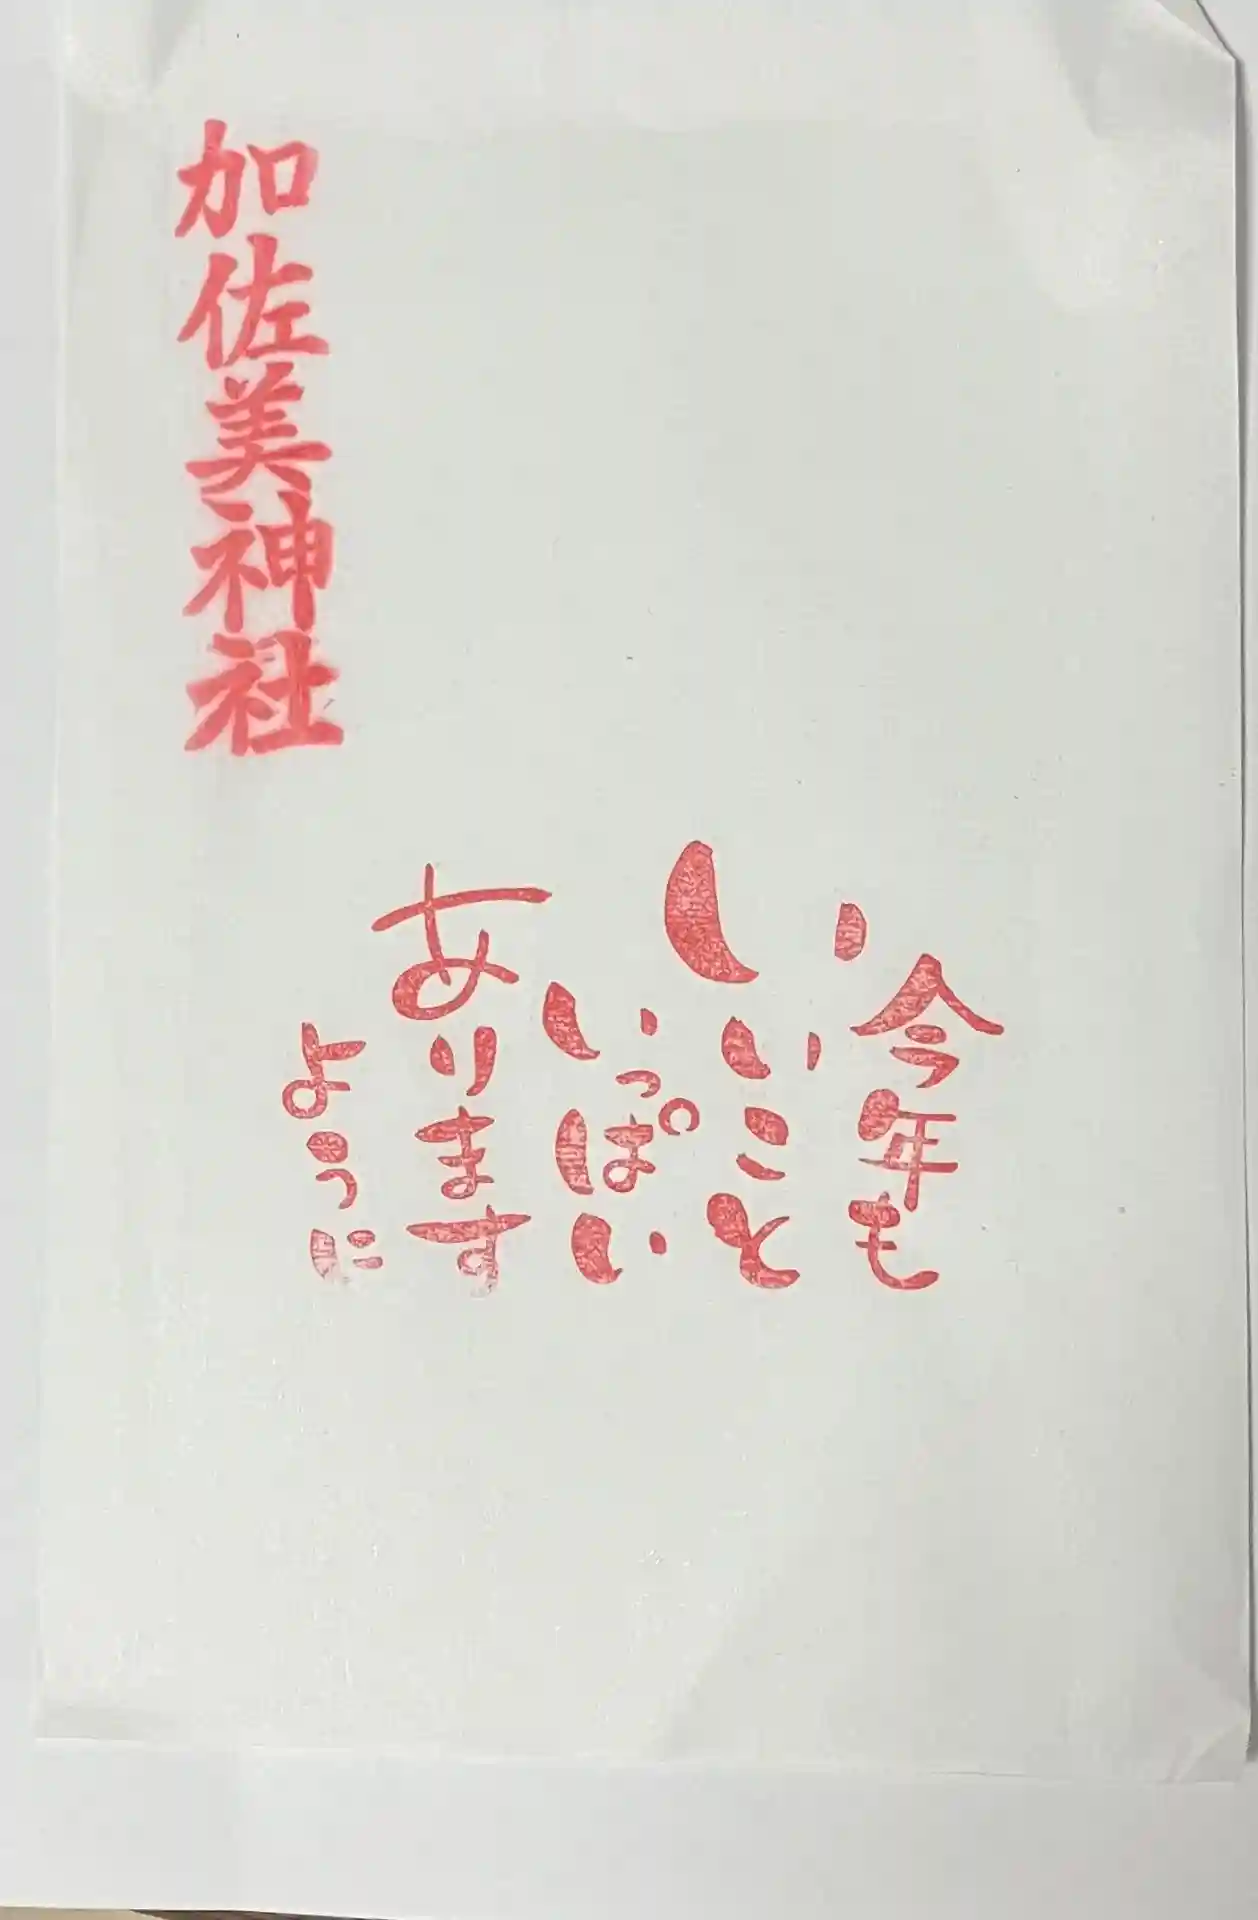 今年も
いいこと
いっぱい
あります
ように
加佐美神社